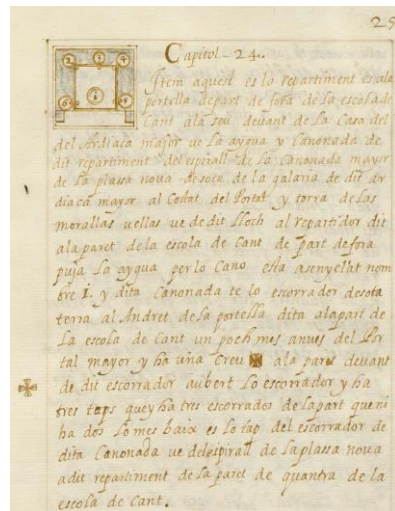 25
Capitol - 24..
Item aquest es lo repartiment es ala
portella depart de fora de la escola de
Cant ala seu devant de la Casa del
del Ardiaca major ve la aygua y Canonada de
dit repartiment del espirall de la Canonada mayor
de la plassa nova desota de la galaria de dit ar
diaca mayor al Costat del Portal y torra de las
morallas vellas ve de dit lloch al repartidor dit
ala paret de la escola de Cant de part de fora
puja la aygua per lo Cano esta asenyellat nom
bre 1. y dita Canonada te lo escorrador desota
terra al Andret de la portella dita ala part de
la escola de Cant un poch mes anves del Por
tal mayor y ha una Creu ala paret devant
de dit escorrador aubert lo escorrador y ha
tres taps que y ha tres escorradors de la part que ni
ha dos lo mes baix es lo tap del escorrador de
dita Canonada ve del espirall de la plassa nova
a dit repartiment de la paret de quantra de la
escola de Cant.
2
3
4
1
6
5